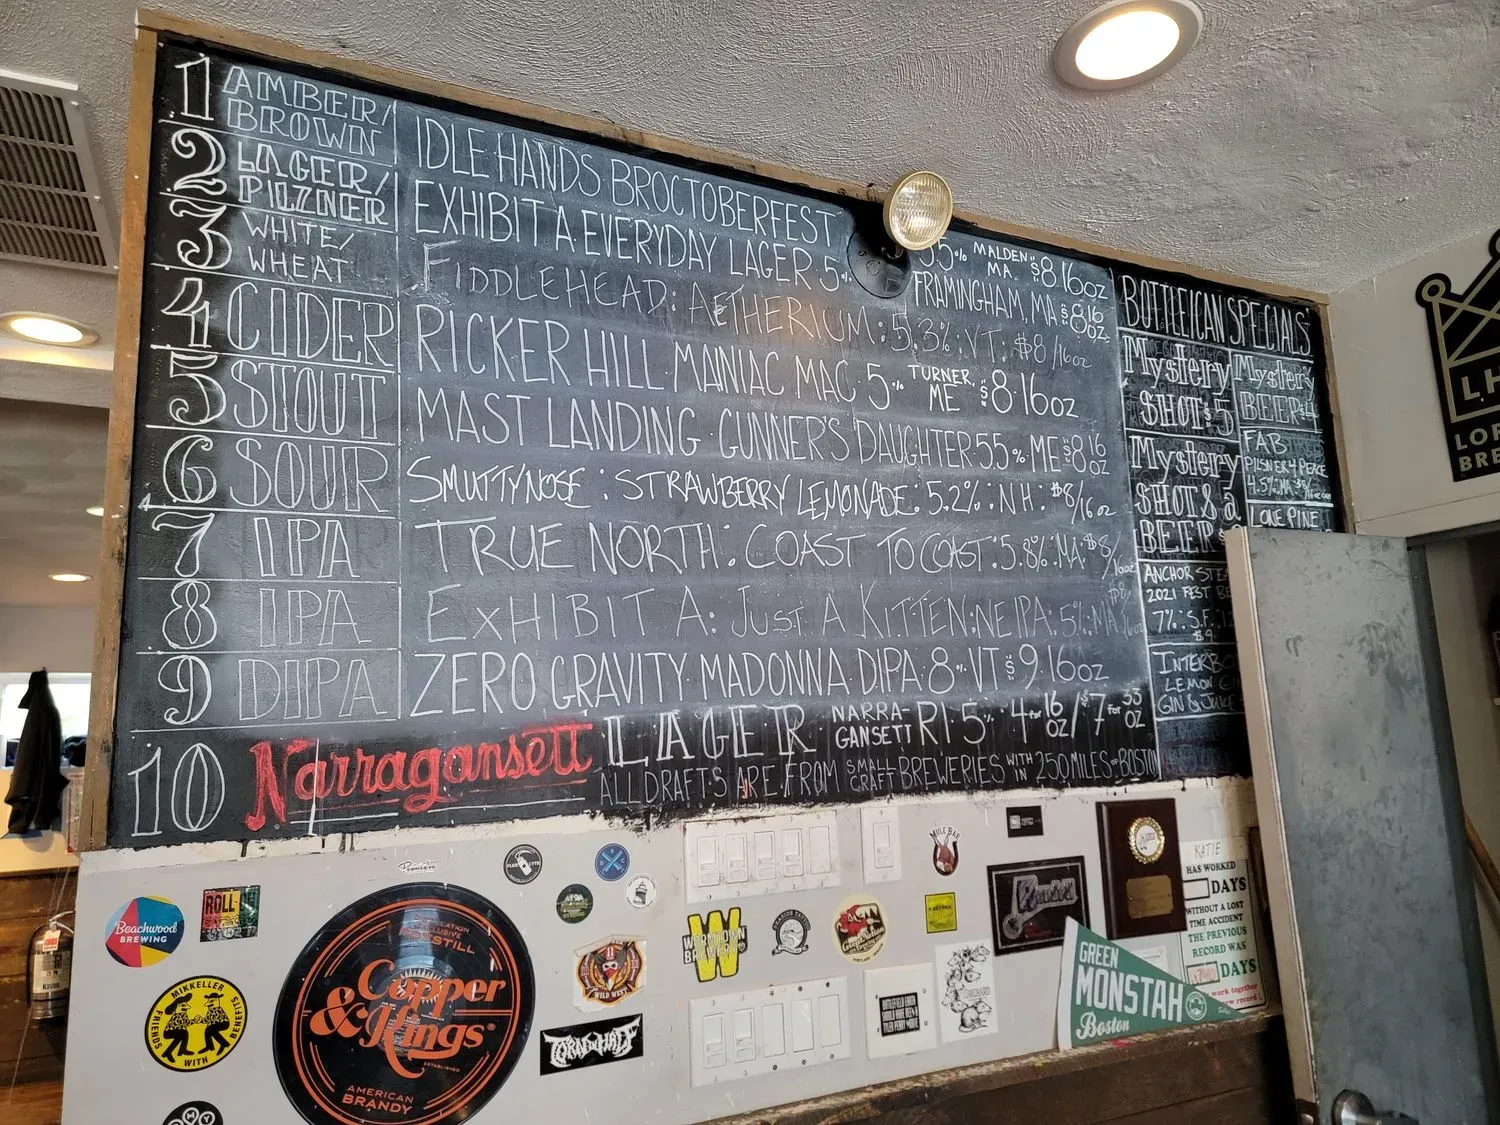 1 AMBER/
BROWN
IDLE HANDS BROCTOBERFEST 5.5% MALDEN MA $8 16oz
2 LAGER/
PILZNER
EXHIBIT A EVERYDAY LAGER 5% FRAMINGHAM, MA $8 16 oz
3 WHITE/
WHEAT
FIDDLEHEAD: AETHERIUM: 5.3%: VT: $8/16oz
4 CIDER
RICKER HILL MANIAC MAC 5% TURNER, ME $8 16oz
5 STOUT
MAST LANDING GUNNER'S DAUGHTER 5.5% ME $8 16 oz
6 SOUR
SMUTTYNOSE: STRAWBERRY LEMONADE: 5.2%: NH: $8/16oz
7 IPA
TRUE NORTH: COAST TO COAST: 5.8%: MA: $8/16oz
8 IPA
EXHIBIT A: JUST A KITTEN: NE IPA: 5%: MA $8/
9 DIPA
ZERO GRAVITY MADONNA DIPA 8% VT $9 16oz
10 Narragansett LAGER NARRA-
GANSETT RI 5% 4 for 16 OZ / $7 for 33 OZ
ALL DRAFTS ARE FROM SMALL CRAFT BREWERIES WITHIN 250 MILES OF BOSTON
BOTTLE/CAN SPECIALS
Mystery
SHOT $5
Mystery
SHOT & a
BEER
ANCHOR STEA
2021 FEST BE
7%: S.F.
$9
INTERBO
LEMON
GIN & JUICE
Mystery
BEER $4
FAB
PILSNER 4 PEACE
4.5% MA
LONE PINE
LOR
BRE
Beachwood
BREWING
ROLL
MIKKELLER
FRIENDS
WITH
BENEFITS
DISTILLATION
EXCLUSIVE
POTSTILL
Copper
& Kings
ESTABLISHED
AMERICAN
BRANDY
WILD WEST
TORN IN HALF
WORMTOWN
BREWERY
W
MULE BAR
KATIE
HAS WORKED
DAYS
WITHOUT A LOST
TIME ACCIDENT
THE PREVIOUS
RECORD WAS
DAYS
work together
new record
GREEN
MONSTAH
Boston